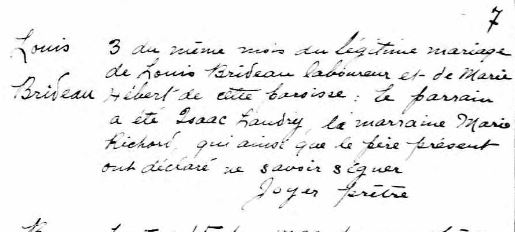 7
Louis 3 du même mois du légitime mariage
de Louis Brideau laboureur et de Marie
Brideau Hébert de cette paroisse : le parrain
a été Isaac Landry, la marraine Marie
Richard, qui ainsi que le père présent
ont déclaré ne savoir signer
Joyer prêtre